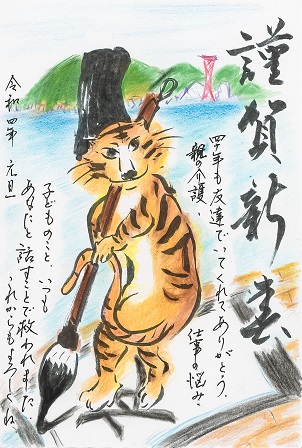 謹賀新春
四十年も友達でいてくれてありがとう。
親の介護、
仕事の悩み
子どものこと、いつも
あなたと話すことで救われました
これからもよろしくね
令和四年 元旦